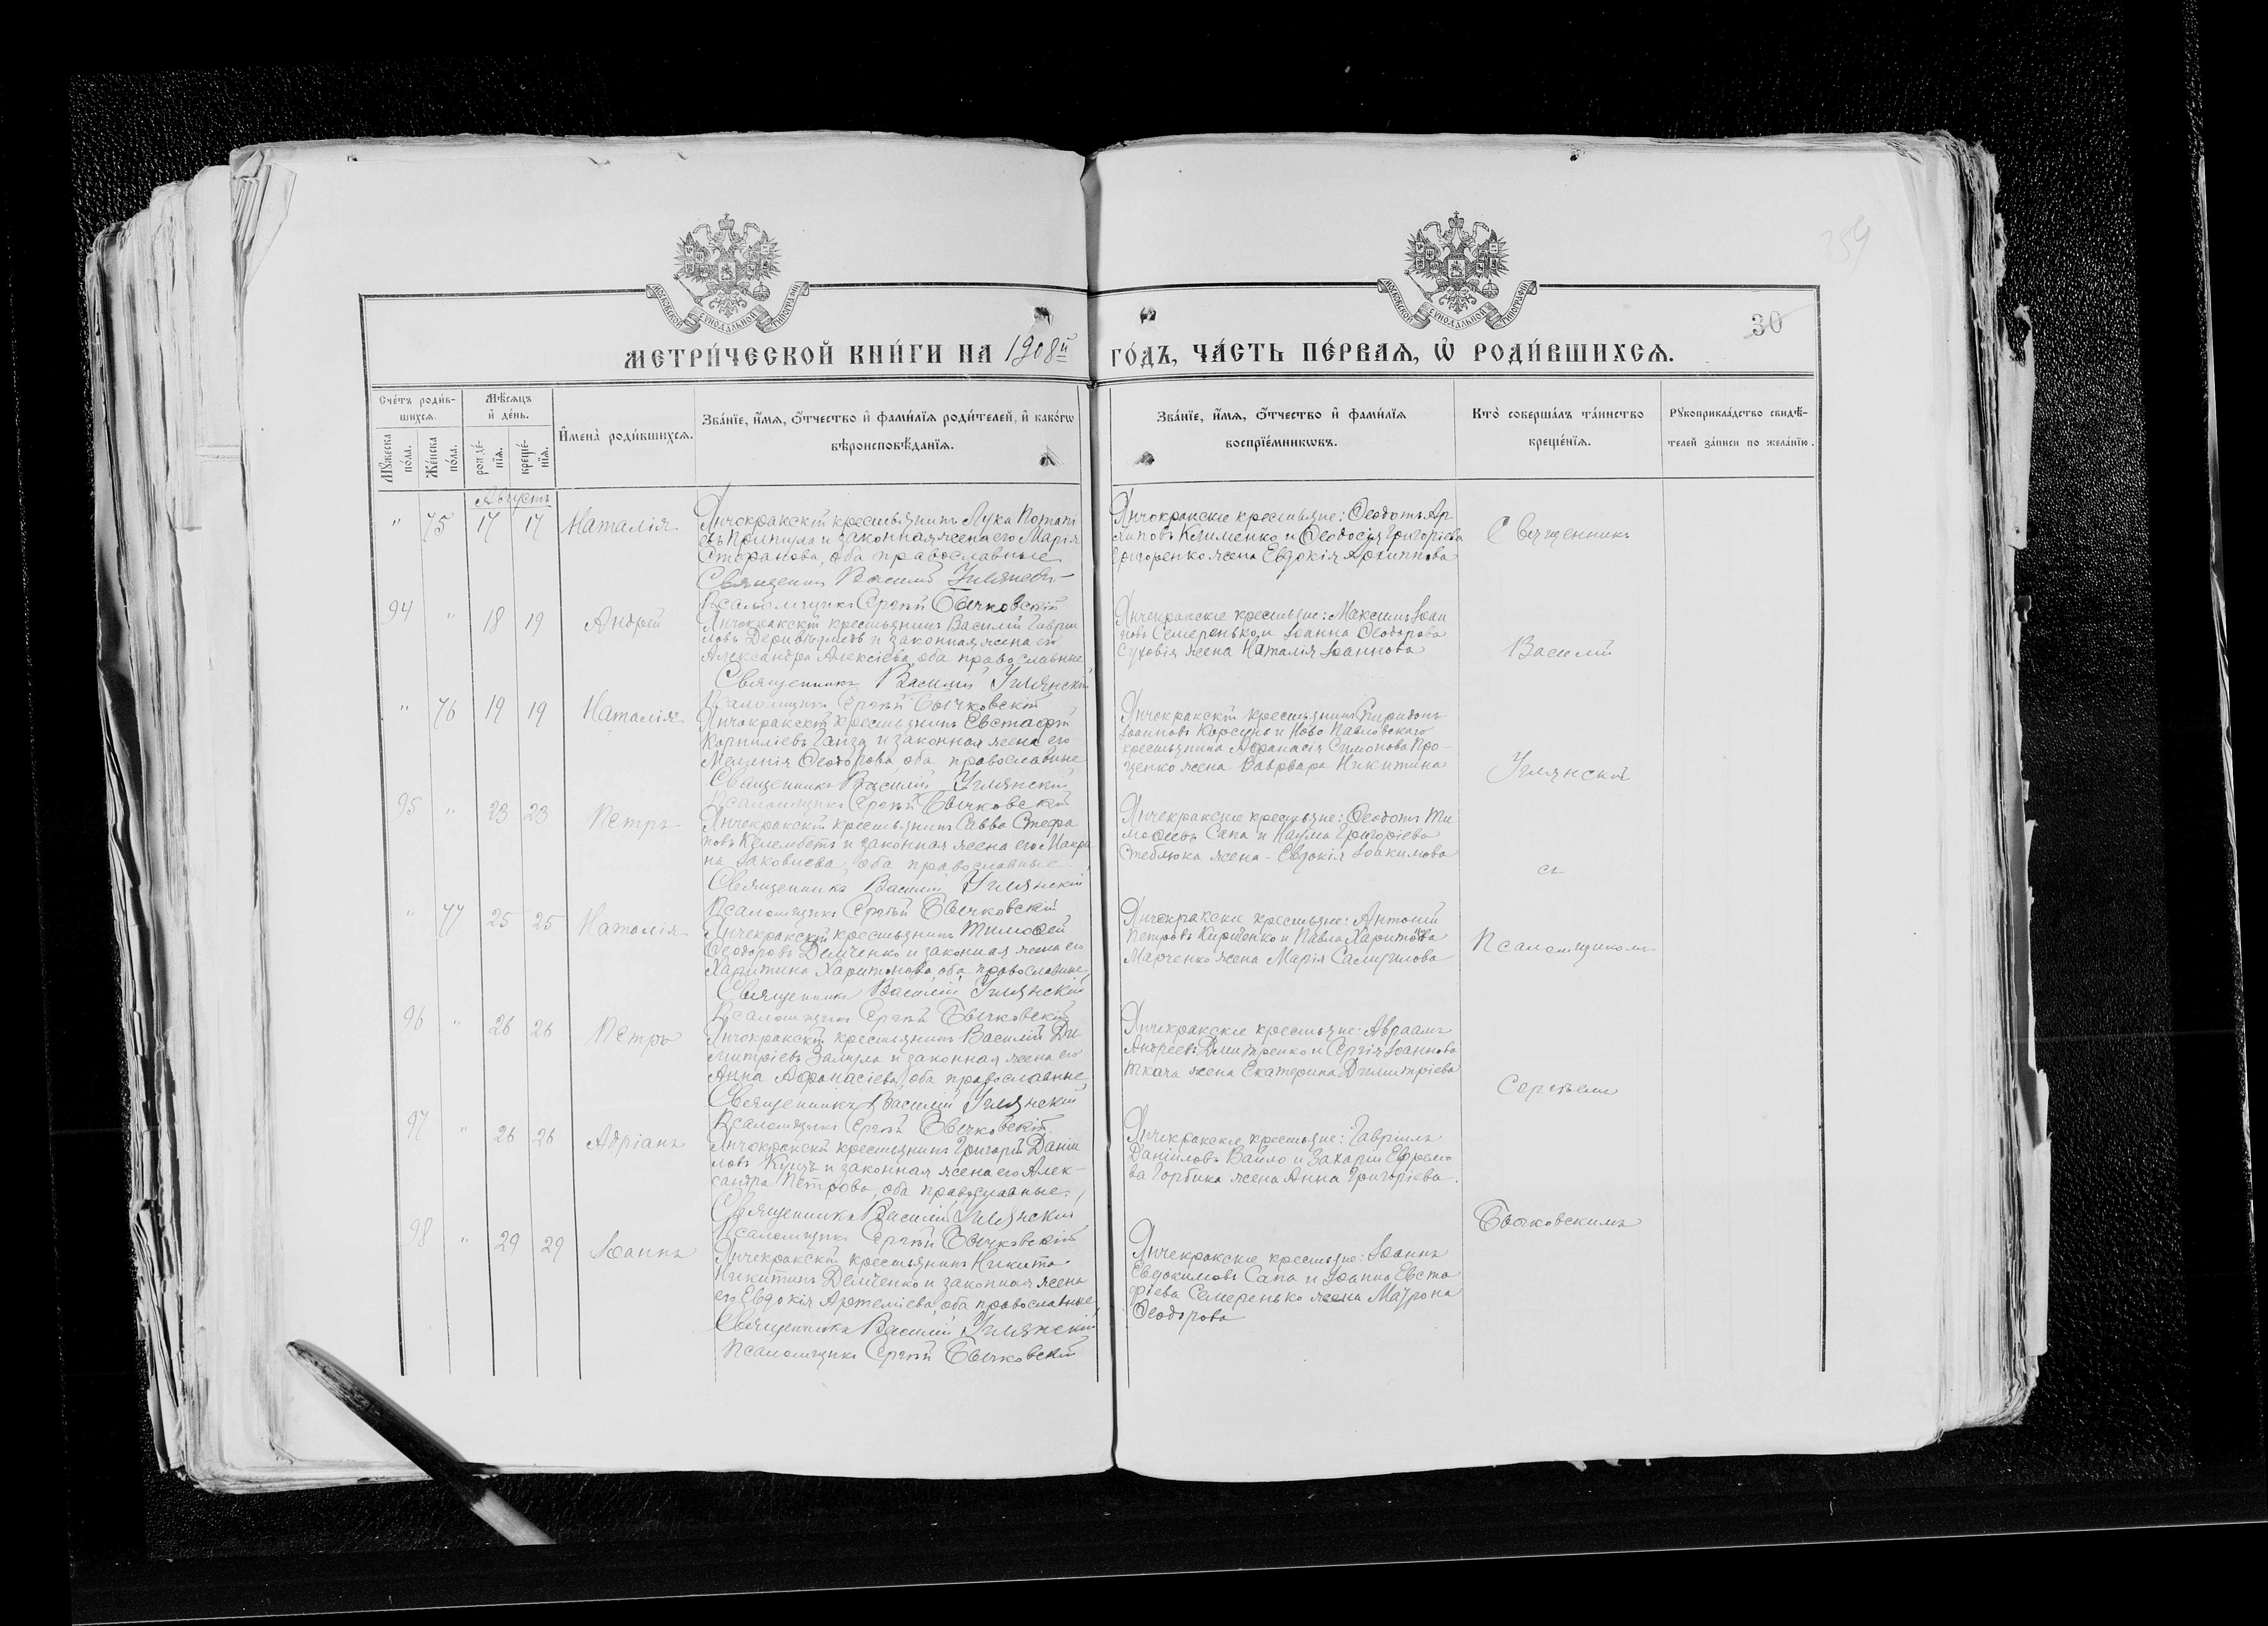 359
30
МОСКОВСКОЙ СѴНОДАЛЬНОЙ ТИПОГРАФІИ
МОСКОВСКОЙ СѴНОДАЛЬНОЙ ТИПОГРАФІИ
МЕТРИ́ЧЕСКОЙ КНИ́ГИ НА 1908й ГО́ДЪ, ЧА́СТЬ ПЕ́РВАѦ, Ѡ҆ РОДИ́ВШИХСѦ.
Сче́тъ роди́в-
шихсѧ.
Мꙋ́жеска
по́ла.
Же́нска
по́ла.
Мѣ́сѧцъ
и҆ де́нь.
рожде́-
нїѧ.
креще́-
нїѧ.
И҆мена̀ роди́вшихсѧ.
Зва́нїе, и҆́мѧ, ѻ҆́тчество и҆ фами́лїѧ роди́телей, и҆ како́гѡ
вѣроисповѣ́данїѧ.
Зва́нїе, и҆́мѧ, ѻ҆́тчество и҆ фами́лїѧ
воспрїе́мникѡвъ.
Кто̀ соверша́лъ та́инство
креще́нїѧ.
Рꙋкоприкла́дство свидѣ́-
телей за́писи по жела́нїю.
Августъ
" 75 17 17 Наталія
Янчокракскій крестьянинъ Лука Потапі
евъ Притула и законная жена его Марія
Стефанова, оба православные
Священникъ Василій
Псаломщикъ Сергѣй Бычковскій
Янчокракскіе крестьяне: Ѳеодотъ Ар
хиповъ Клименко и Ѳеодосія Григоріева
Григоренко жена Евдокія Архиппова
94 " 18 19 Андрей
Янчокракскій крестьянинъ Василій Гаврии
ловъ и законная жена его
Александра Алексіева, оба православные
Священникъ Василій Умянскій
Псаломщикъ Сергѣй Бычковскій
Янчекракскіе крестьяне: Максимъ Іоан
новъ Семеренько и Іоанна Ѳеодорова
Суховія жена Наталія Іоаннова
" 76 19 19 Наталія
Янчокракскій крестьянинъ Евстафій
Корниліевъ Ганза и законная жена его
Мелетія Ѳеодорова, оба православные
Священникъ Василій Умянскій
Псаломщикъ Сергѣй Бычковскій
Янчекракскій крестьянинъ Спиридонъ
Іоанновъ Корсунь и Ново Павловскаго
крестьянина Аѳанасія Симонова Про-
ценко жена Варвара Никитина
95 " 23 23 Петръ
Янчекракскій крестьянинъ Савва Стефа
новъ Келембетъ и законная жена его Макри
на Іаковлева, оба православные
Священникъ Василій Умянскій
Псаломщикъ Сергѣй Бычковскій
Янчекракскіе крестьяне: Ѳеодотъ Ти
моѳіевъ Сапа и Наума Григоріева
Стеблюка жена - Евдокія Іоакимова
" 77 25 25 Наталія
Янчекракскій крестьянинъ Тимоѳей
Ѳеодоровъ Демченко и законная жена его
Харитина Харитонова, оба православные,
Священникъ Василій Умянскій
Псаломщикъ Сергѣй Бычковскій
Янчекракскіе крестьяне: Антоній
Петровъ Кириченко и Павла Харитонова
Марченко жена Марія Самуилова
96 " 26 26 Петръ
Янчокракскій крестьянинъ Василій Ди
митріевъ и законная жена его
Анна Аѳанасіева, оба православные
Священникъ Василій Умянскій
Псаломщикъ Сергѣй Бычковскій
Янчекракскіе крестьяне: Авраамъ
Андреевъ Дмитренко и Сергія Іоаннова
Ткача жена Екатерина Димитріева
97 " 26 26 Адріанъ
Янчокракскій крестьянинъ Григорій Даніи
ловъ Куцъ и законная жена его Алек-
сандра Петрова, оба православные.
Священникъ Василій Умянскій
Псаломщикъ Сергѣй Бычковскій
Янчекракскіе крестьяне: Гавріилъ
Даніиловъ Вайло и Захарія Ефремо
ва Горбика жена Анна Григоріева.
98 " 29 29 Іоаннъ
Янчекракскій крестьянинъ Никита
Никитинъ Демченко и законная жена
его Евдокія Артеміева, оба православные,
Священникъ Василій Умянскій
Псаломщикъ Сергѣй Бычковскій
Янчекракскіе крестьяне: Іоаннъ
Евдокимовъ Сапа и Іоанна Евста
фіева Семеренько жена Матрона
Ѳеодорова
Священникъ
Василій
Умянскій
съ
Псаломщикомъ
Сергѣемъ
Бычковскимъ